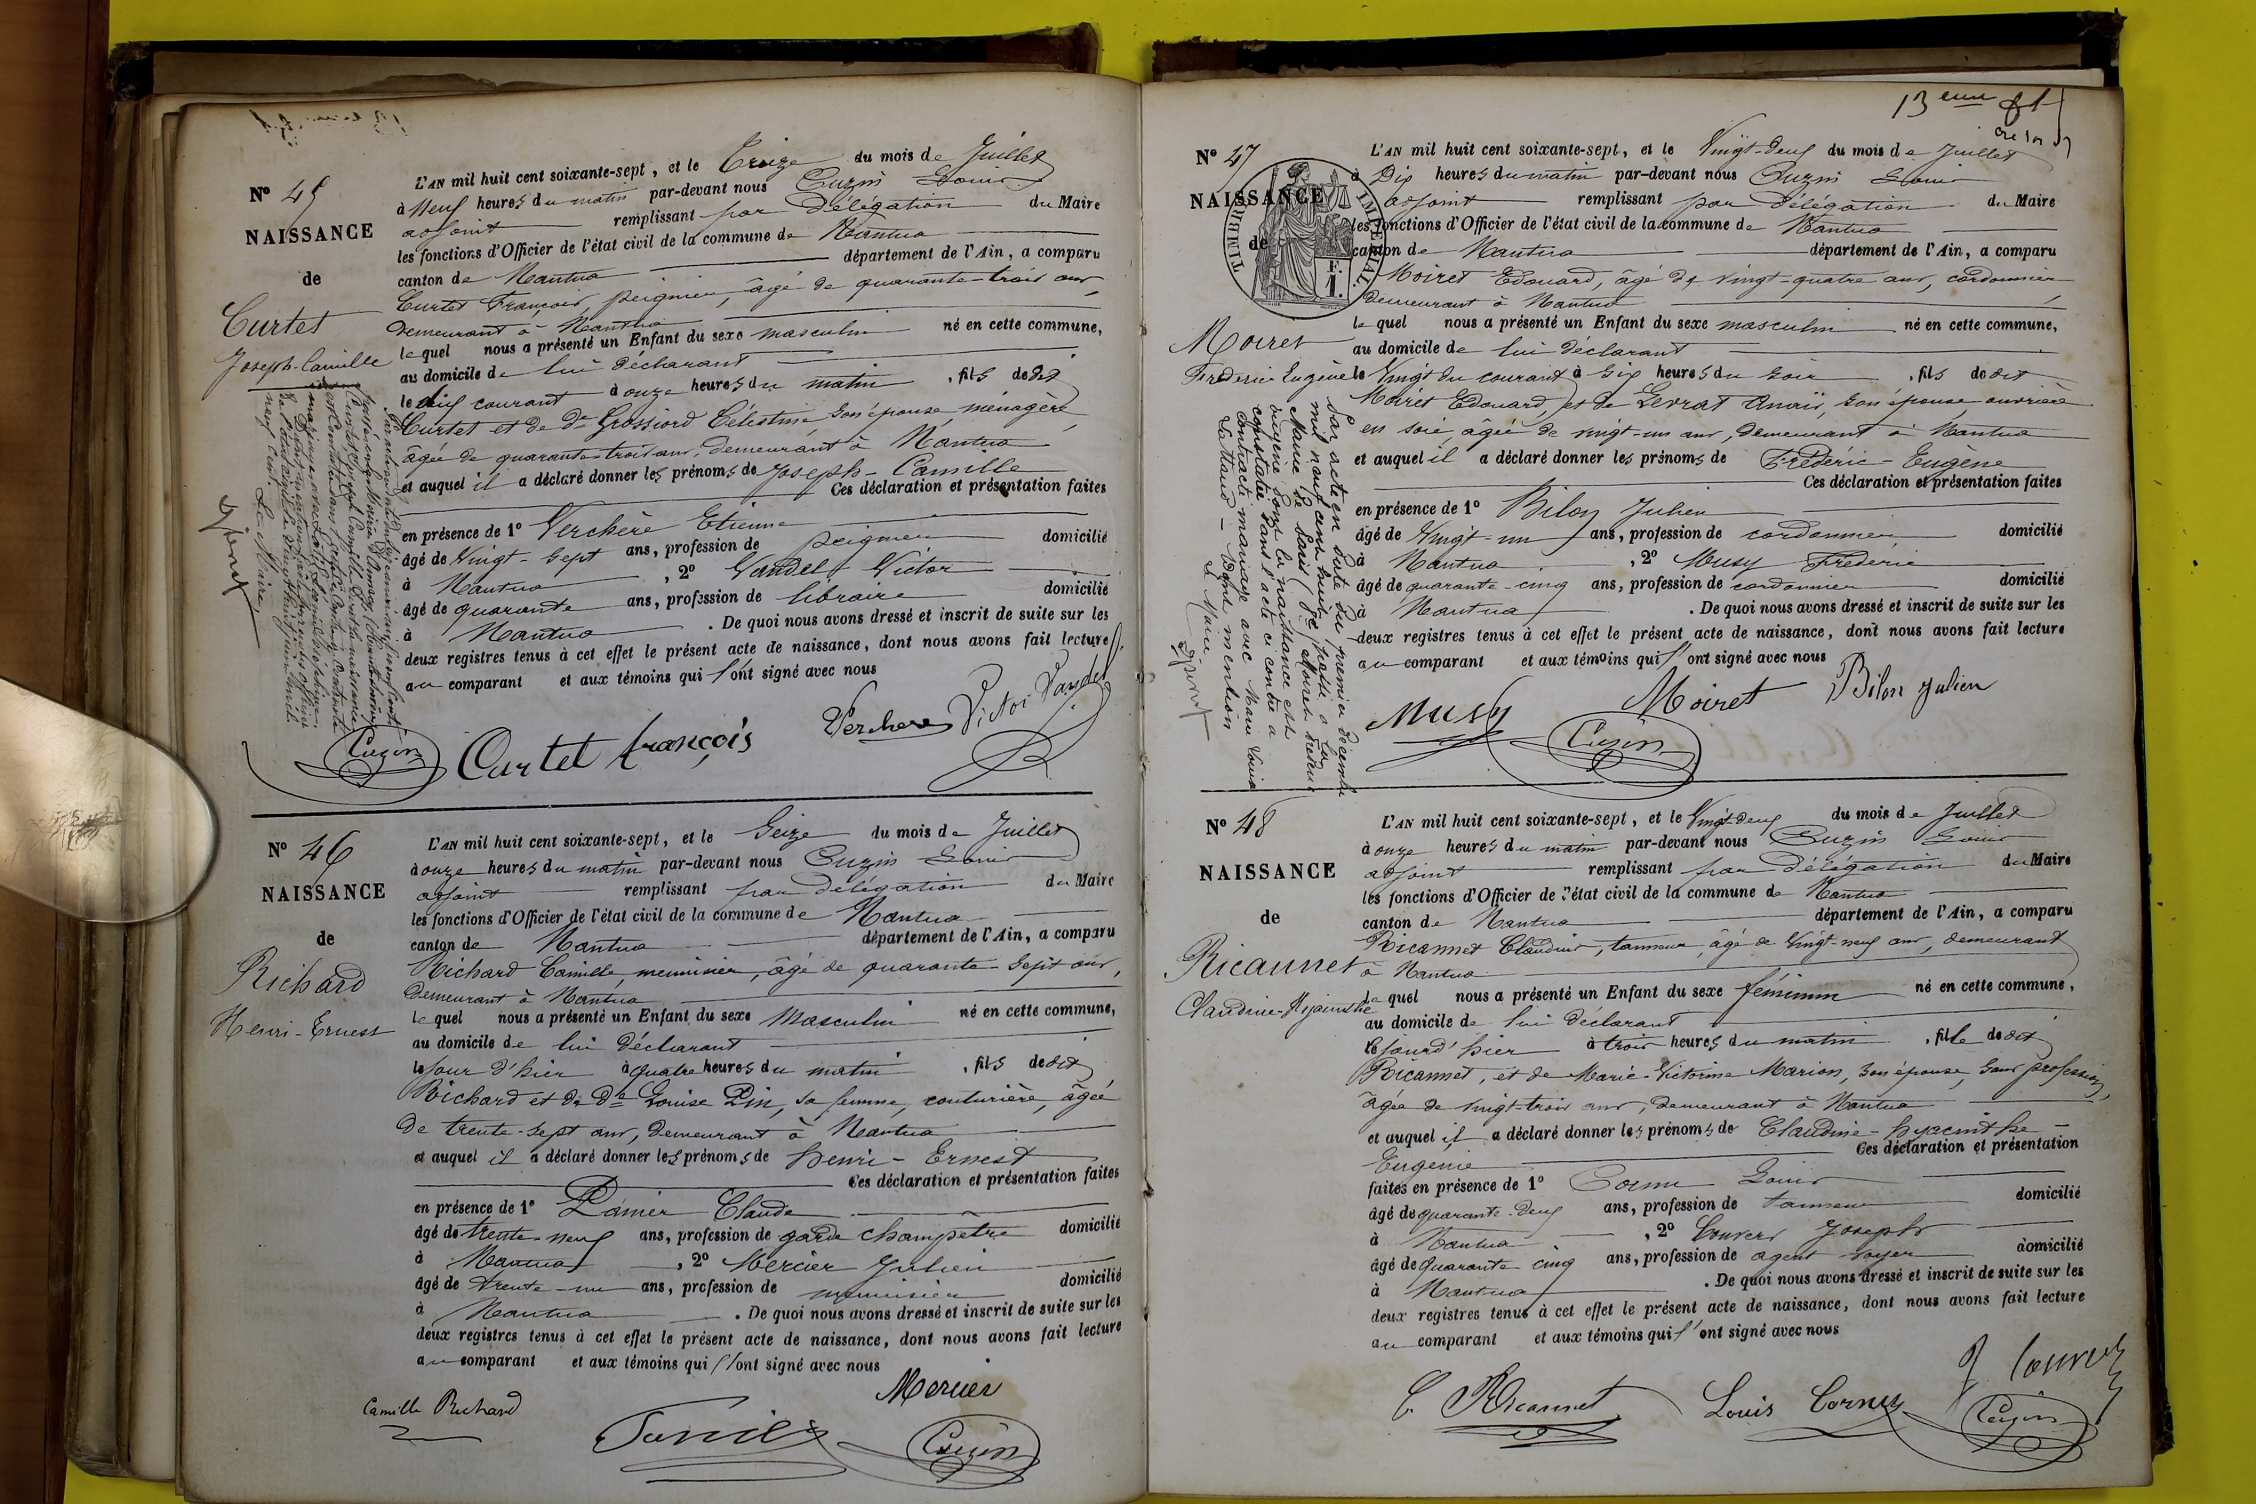 Nº 45
NAISSANCE
de
Curtet
Joseph-Camille
L'AN mil huit cent soixante-sept, et le Treize du mois de Juillet
à Neuf heures du matin par-devant nous Cuzin Louis
adjoint remplissant par délégation du Maire
les fonctions d'Officier de l'état civil de la commune de Nantua
canton de Nantua département de l'Ain, a comparu
Curtet François, peignier, âgé de quarante-trois ans,
demeurant à Nantua
lequel nous a présenté un Enfant du sexe masculin né en cette commune,
au domicile de lui déclarant
le dix courant à onze heures du matin, fils dudit
Curtet et de De Grossiord Célestine, son épouse, ménagère,
âgée de quarante-trois ans, demeurant à Nantua
et auquel il a déclaré donner les prénoms de Joseph-Camille
Ces déclaration et présentation faites
en présence de 1º Verchère Etienne
âgé de Vingt-sept ans, profession de peignier domicilié
à Nantua, 2º Vandel Victor
âgé de quarante ans, profession de libraire domicilié
à Nantua. De quoi nous avons dressé et inscrit de suite sur les
deux registres tenus à cet effet le présent acte de naissance, dont nous avons fait lecture
au comparant et aux témoins qui l'ont signé avec nous
Cuzin Curtet françois Verchere Victor Vandel
Le Maire,
Nº 46
NAISSANCE
de
Richard
Henri-Ernest
L'AN mil huit cent soixante-sept, et le Seize du mois de Juillet
à onze heures du matin par-devant nous Cuzin Louis
adjoint remplissant par délégation du Maire
les fonctions d'Officier de l'état civil de la commune de Nantua
canton de Nantua département de l'Ain, a comparu
Richard Camille, menuisier, âgé de quarante-sept ans,
demeurant à Nantua
lequel nous a présenté un Enfant du sexe Masculin né en cette commune,
au domicile de lui déclarant
le jour d'hier à quatre heures du matin, fils dudit
Richard et de De Louise Pin, sa femme, couturière, âgée
de trente-sept ans, demeurant à Nantua
et auquel il a déclaré donner les prénoms de henri-Ernest
Ces déclaration et présentation faites
en présence de 1º Claude
âgé de trente-neuf ans, profession de garde champêtre domicilié
à Nantua, 2º Mercier Julien
âgé de trente-un ans, profession de menuisier domicilié
à Nantua. De quoi nous avons dressé et inscrit de suite sur les
deux registres tenus à cet effet le présent acte de naissance, dont nous avons fait lecture
au comparant et aux témoins qui l'ont signé avec nous
Camille Richard Mercier Cuzin
13 eme
Nº 47
NAISSANCE
de
TIMBRE IMPÉRIAL
F.
1.
Moiret
Frédéric Eugène
L'AN mil huit cent soixante-sept, et le Vingt-deux du mois de Juillet
à Dix heures du matin par-devant nous Cuzin Louis
adjoint remplissant par délégation du Maire
les fonctions d'Officier de l'état civil de la commune de Nantua
canton de Nantua département de l'Ain, a comparu
Moiret Edouard, âgé de vingt-quatre ans, cordonnier
demeurant à Nantua
lequel nous a présenté un Enfant du sexe masculin né en cette commune,
au domicile de lui déclarant
le Vingt du courant à six heures du soir, fils dudit
Moiret Edouard, et de Levrat Anaïs, son épouse, ouvrière
en soie, âgée de vingt-un ans, demeurant à Nantua
et auquel il a déclaré donner les prénoms de Frédéric-Eugène
Ces déclaration et présentation faites
en présence de 1º Bilon Julien
âgé de Vingt-un ans, profession de cordonnier domicilié
à Nantua, 2º Musy Frédéric
âgé de quarante-cinq ans, profession de cordonnier domicilié
à Nantua. De quoi nous avons dressé et inscrit de suite sur les
deux registres tenus à cet effet le présent acte de naissance, dont nous avons fait lecture
au comparant et aux témoins qui l'ont signé avec nous
Musy Cuzin Moiret Bilon Julien
Par acte en date du premier décembre
mil neuf cent huit, passé à la
Mairie de Paris Moiret Frédéric
Eugène dont la naissance est
constatée dans l'acte ci-contre a
contracté mariage avec Marie Louise
Lettraud - Dont mention
Le Maire
Nº 48
NAISSANCE
de
Ricannet
Claudine-Hyacinthe
L'AN mil huit cent soixante-sept, et le Vingt-deux du mois de Juillet
à onze heures du matin par-devant nous Cuzin Louis
adjoint remplissant par délégation du Maire
les fonctions d'Officier de l'état civil de la commune de Nantua
canton de Nantua département de l'Ain, a comparu
Ricannet Claudius, tanneur, âgé de Vingt-neuf ans, demeurant
à Nantua
lequel nous a présenté un Enfant du sexe féminin né en cette commune,
au domicile de lui déclarant
le jourd'hier à trois heures du matin, fille dudit
Ricannet, et de Marie-Victorine Marion, son épouse, sans profession,
âgée de vingt-trois ans, demeurant à Nantua
et auquel il a déclaré donner les prénoms de Claudine-hyacinthe
Eugénie Ces déclaration et présentation
faites en présence de 1º Cornu Louis
âgé de quarante-deux ans, profession de tanneur domicilié
à Nantua, 2º Louvrex Joseph
âgé de quarante cinq ans, profession de agent voyer domicilié
à Nantua. De quoi nous avons dressé et inscrit de suite sur les
deux registres tenus à cet effet le présent acte de naissance, dont nous avons fait lecture
au comparant et aux témoins qui l'ont signé avec nous
C. Ricannet Louis Cornu Cuzin